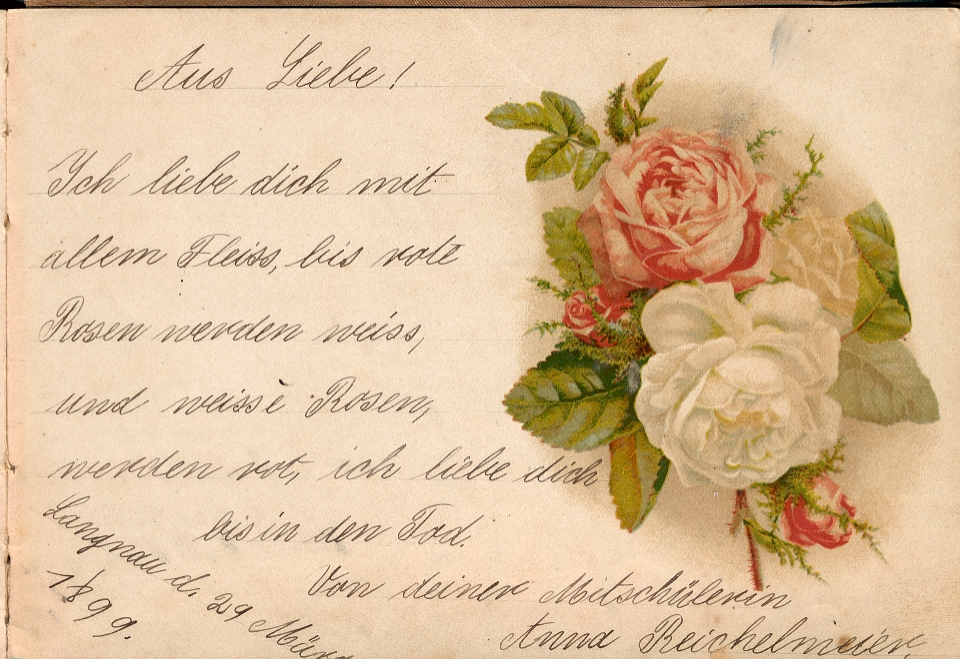 Aus Liebe!
Ich liebe dich mit
allem Fleiss, bis rote
Rosen werden weiss,
und weisse Rosen,
werden rot, ich liebe dich
bis in den Tod.
Von deiner Mitschülerin
Anna Reichelmeier.
Langnau d. 29 März
1899.